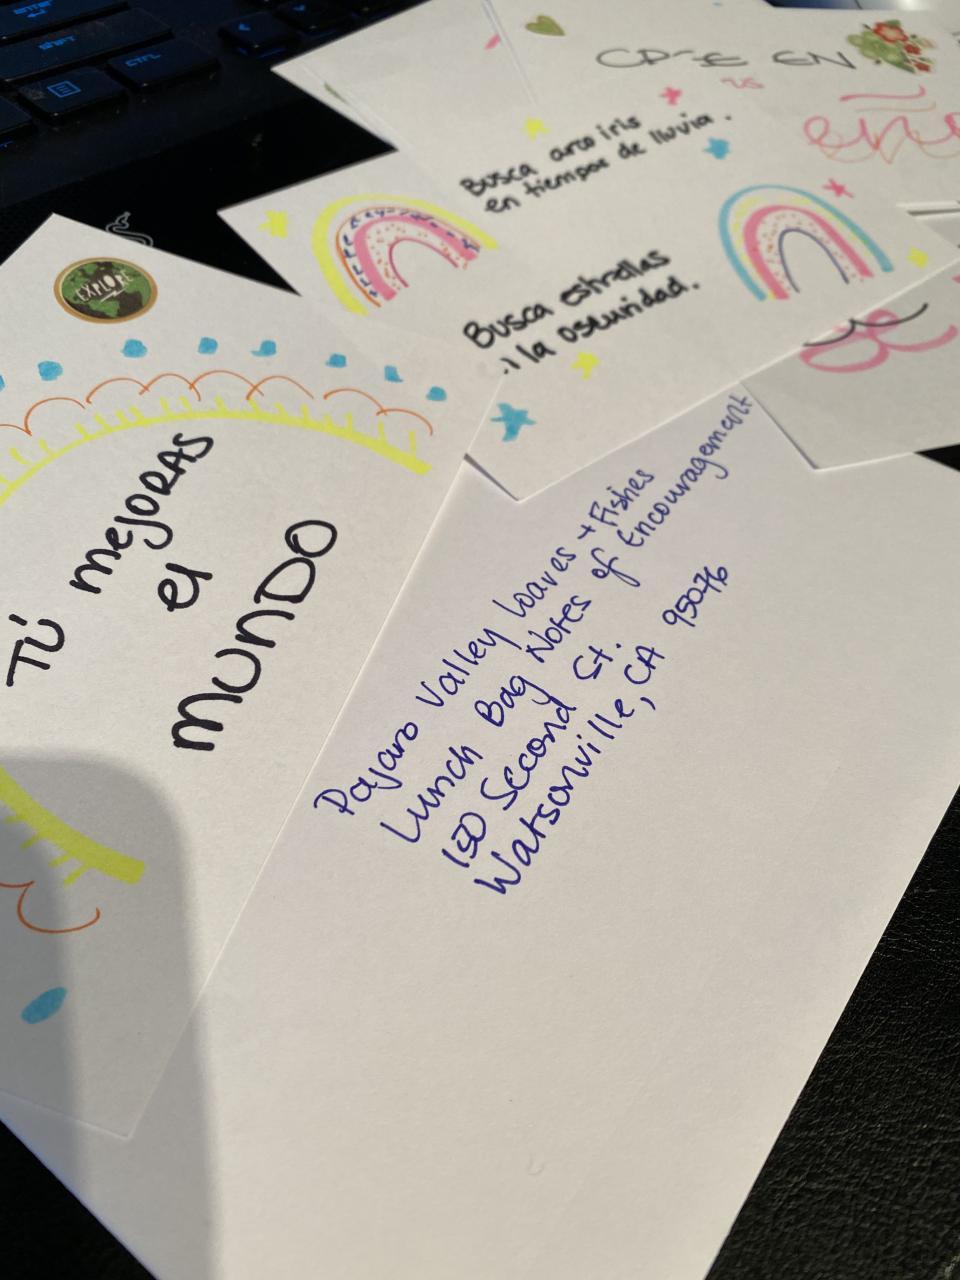 ENTER
SHIFT
CTRL
CREE EN
Busca arco iris
en tiempos de lluvia.
Busca estrellas
la oscuridad.
EXPLORE
TÚ mejoRAS
el
MUNDO
Pajaro Valley Loaves + Fishes
Lunch Bag Notes of Encouragement
150 Second St.
Watsonville, CA 95076